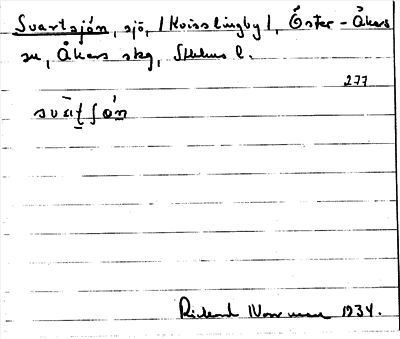 Svartsjön, sjö, /Kvisslingby/, Öster-Åkers
sn, Åkers skg, Sthlms l.
277
Rickard Norrman 1934.